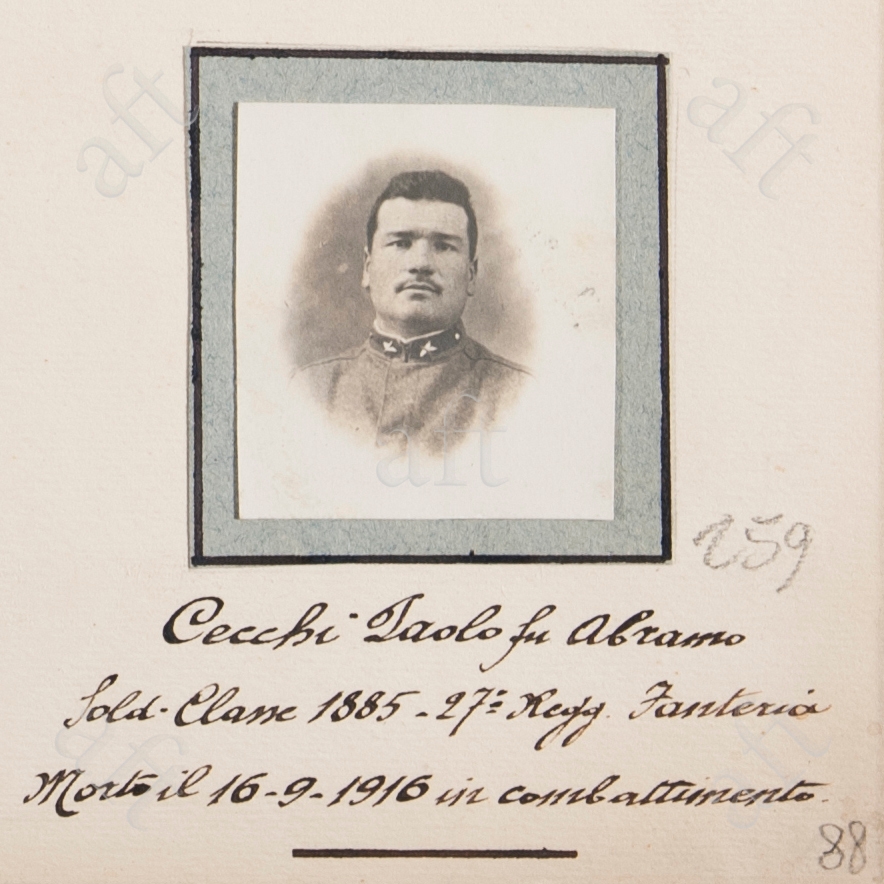 aft
aft
aft
259
Cecchi Paolo fu Abramo
Sold. Classe 1885 - 27º Regg. Fanteria
Morto il 16-9-1916 in combattimento.
aft
aft
88